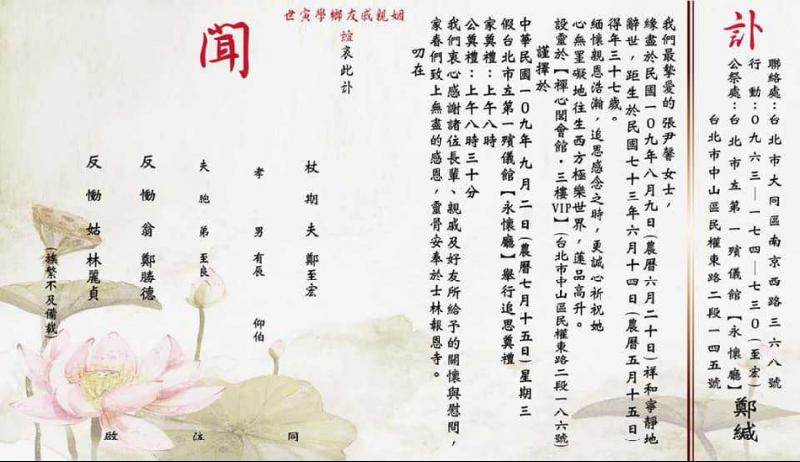 訃
聯絡處：台北市大同區南京西路三六八號
行動：０九六三－一七四－七三０(至宏)
公祭處：台北市立第一殯儀館【永懷廳】
台北市中山區民權東路二段一四五號
鄭緘
我們最摯愛的張尹馨女士，
緣盡於民國一０九年八月九日(農曆六月二十日)祥和寧靜地
辭世，距生於民國七十三年六月十四日(農曆五月十五日)
得年三十七歲。
緬懷親恩浩瀚，追思感念之時，更誠心祈祝她
心無罣礙地往生西方極樂世界，蓮品高升。
設靈於【禪心閣會館・三樓VIP】(台北市中山區民權東路二段一八六號)
謹擇於
中華民國一０九年九月二日(農曆七月十五日)星期三
假台北市立第一殯儀館【永懷廳】舉行追思奠禮
家奠禮：上午八時
公奠禮：上午八時三十分
我們衷心感謝諸位長輩、親戚及好友所給予的關懷與慰問，
家眷們致上無盡的感恩，靈骨安奉於士林報恩寺。
叨在
姻親戚友鄉學寅世
誼哀此訃
聞
杖期夫鄭至宏
孝男有辰 仰伯
夫胞弟至良
反慟翁鄭勝德
反慟姑林麗貞
(族繁不及備載)
同泣啟